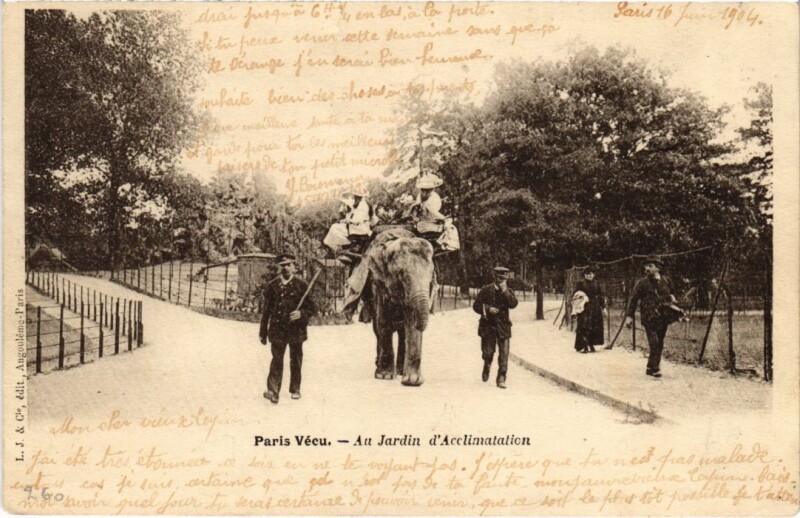 Paris 16 Juin 1904.
drai jusqu'à 6H 1/4 en bas, à la porte.
Si tu peux venir cette semaine sans que ça
te dérange j'en serai bien heureuse.
souhaite bien des choses à
meilleure santé à ta
garde pour toi les meilleurs
baisers de ton petit
L. J. & Cie, édit., Angoulême-Paris
Paris Vécu. — Au Jardin d'Acclimatation
Mon cher vieux Lapin
J'ai été très étonnée ce soir en ne te voyant pas. J'espère que tu n'es pas malade.
cas je suis certaine que n'est pas de ta faute mon pauvre vieux Lapin. Fais
moi savoir quel jour tu seras certaine de pouvoir venir, que ce soit le plus tôt possible je
260